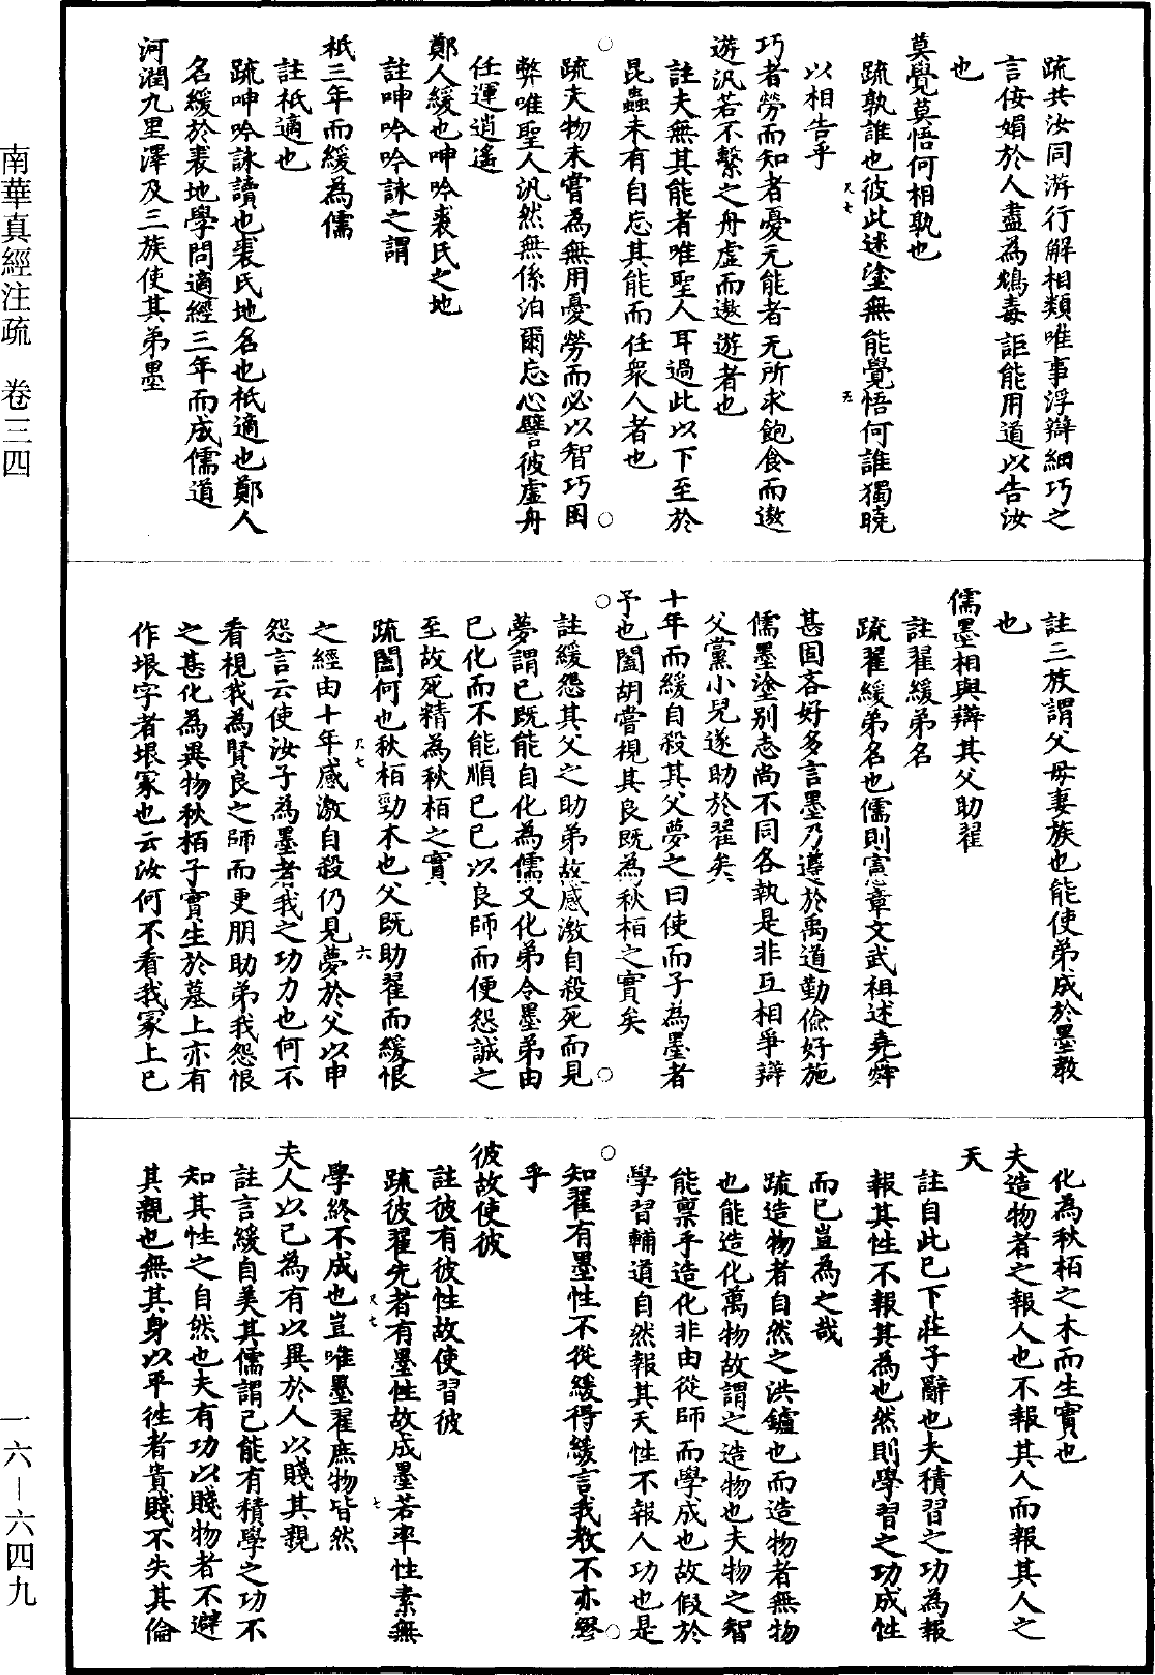 疏共汝同游行解相類唯事浮辯細巧之
言佞媚於人盡為鴆毒詎能用道以告汝
也
莫覺莫悟何相孰也
疏孰誰也彼此迷塗無能覺悟何誰獨曉
以相告乎
巧者勞而知者憂无能者无所求飽食而遨
遊汎若不繫之舟虛而遨遊者也
註夫無其能者唯聖人耳過此以下至於
昆蟲未有自忘其能而任衆人者也
疏夫物未嘗為無用憂勞而必以智巧困
弊唯聖人汎然無係泊爾忘心譬彼虛舟
任運逍遙
鄭人緩也呻吟裘氏之地
註呻吟吟詠之謂
祇三年而緩為儒
註祇適也
疏呻吟詠讀也裘氏地名也祇適也鄭人
名緩於裘地學問適經三年而成儒道
河潤九里澤及三族使其弟墨
尺七
无
註三族謂父母妻族也能使弟成於墨教
也
儒墨相與辯其父助翟
註翟緩弟名
疏翟緩弟名也儒則憲章文武祖述堯舜
甚固吝好多言墨乃遵於禹道勤儉好施
儒墨塗別志尚不同各執是非互相爭辯
父黨小兒遂助於翟矣
十年而緩自殺其父夢之曰使而子為墨者
予也闔胡嘗視其良既為秋柏之實矣
註緩怨其父之助弟故感激自殺死而見
夢謂己既能自化為儒又化弟令墨弟由
己化而不能順己己以良師而便怨誠之
至故死精為秋柏之實
疏闔何也秋栢勁木也父既助翟而緩恨
之經由十年感激自殺仍見夢於父以申
怨言云使汝子為墨者我之功力也何不
看視我為賢良之師而更朋助弟我怨恨
之甚化為異物秋栢子實生於墓上亦有
作垠字者垠冢也云汝何不看我冢上已
尺七
六
化為秋栢之木而生實也
夫造物者之報人也不報其人而報其人之
天
註自此已下莊子辭也夫積習之功為報
報其性不報其為也然則學習之功成性
而已豈為之哉
疏造物者自然之洪鑪也而造物者無物
也能造化萬物故謂之造物也夫物之智
能稟乎造化非由從師而學成也故假於
學習輔道自然報其天性不報人功也是
知翟有墨性不從緩得緩言我教不亦繆
乎
彼故使彼
註彼有彼性故使習彼
疏彼翟先者有墨性故成墨若率性素無
學終不成也豈唯墨翟庶物皆然
夫人以己為有以異於人以賤其親
註言緩自美其儒謂己能有積學之功不
知其性之自然也夫有功以賤物者不避
其親也無其身以平往者貴賤不失其倫
尺七
七
南華真經注疏　卷三四
一六—六四九